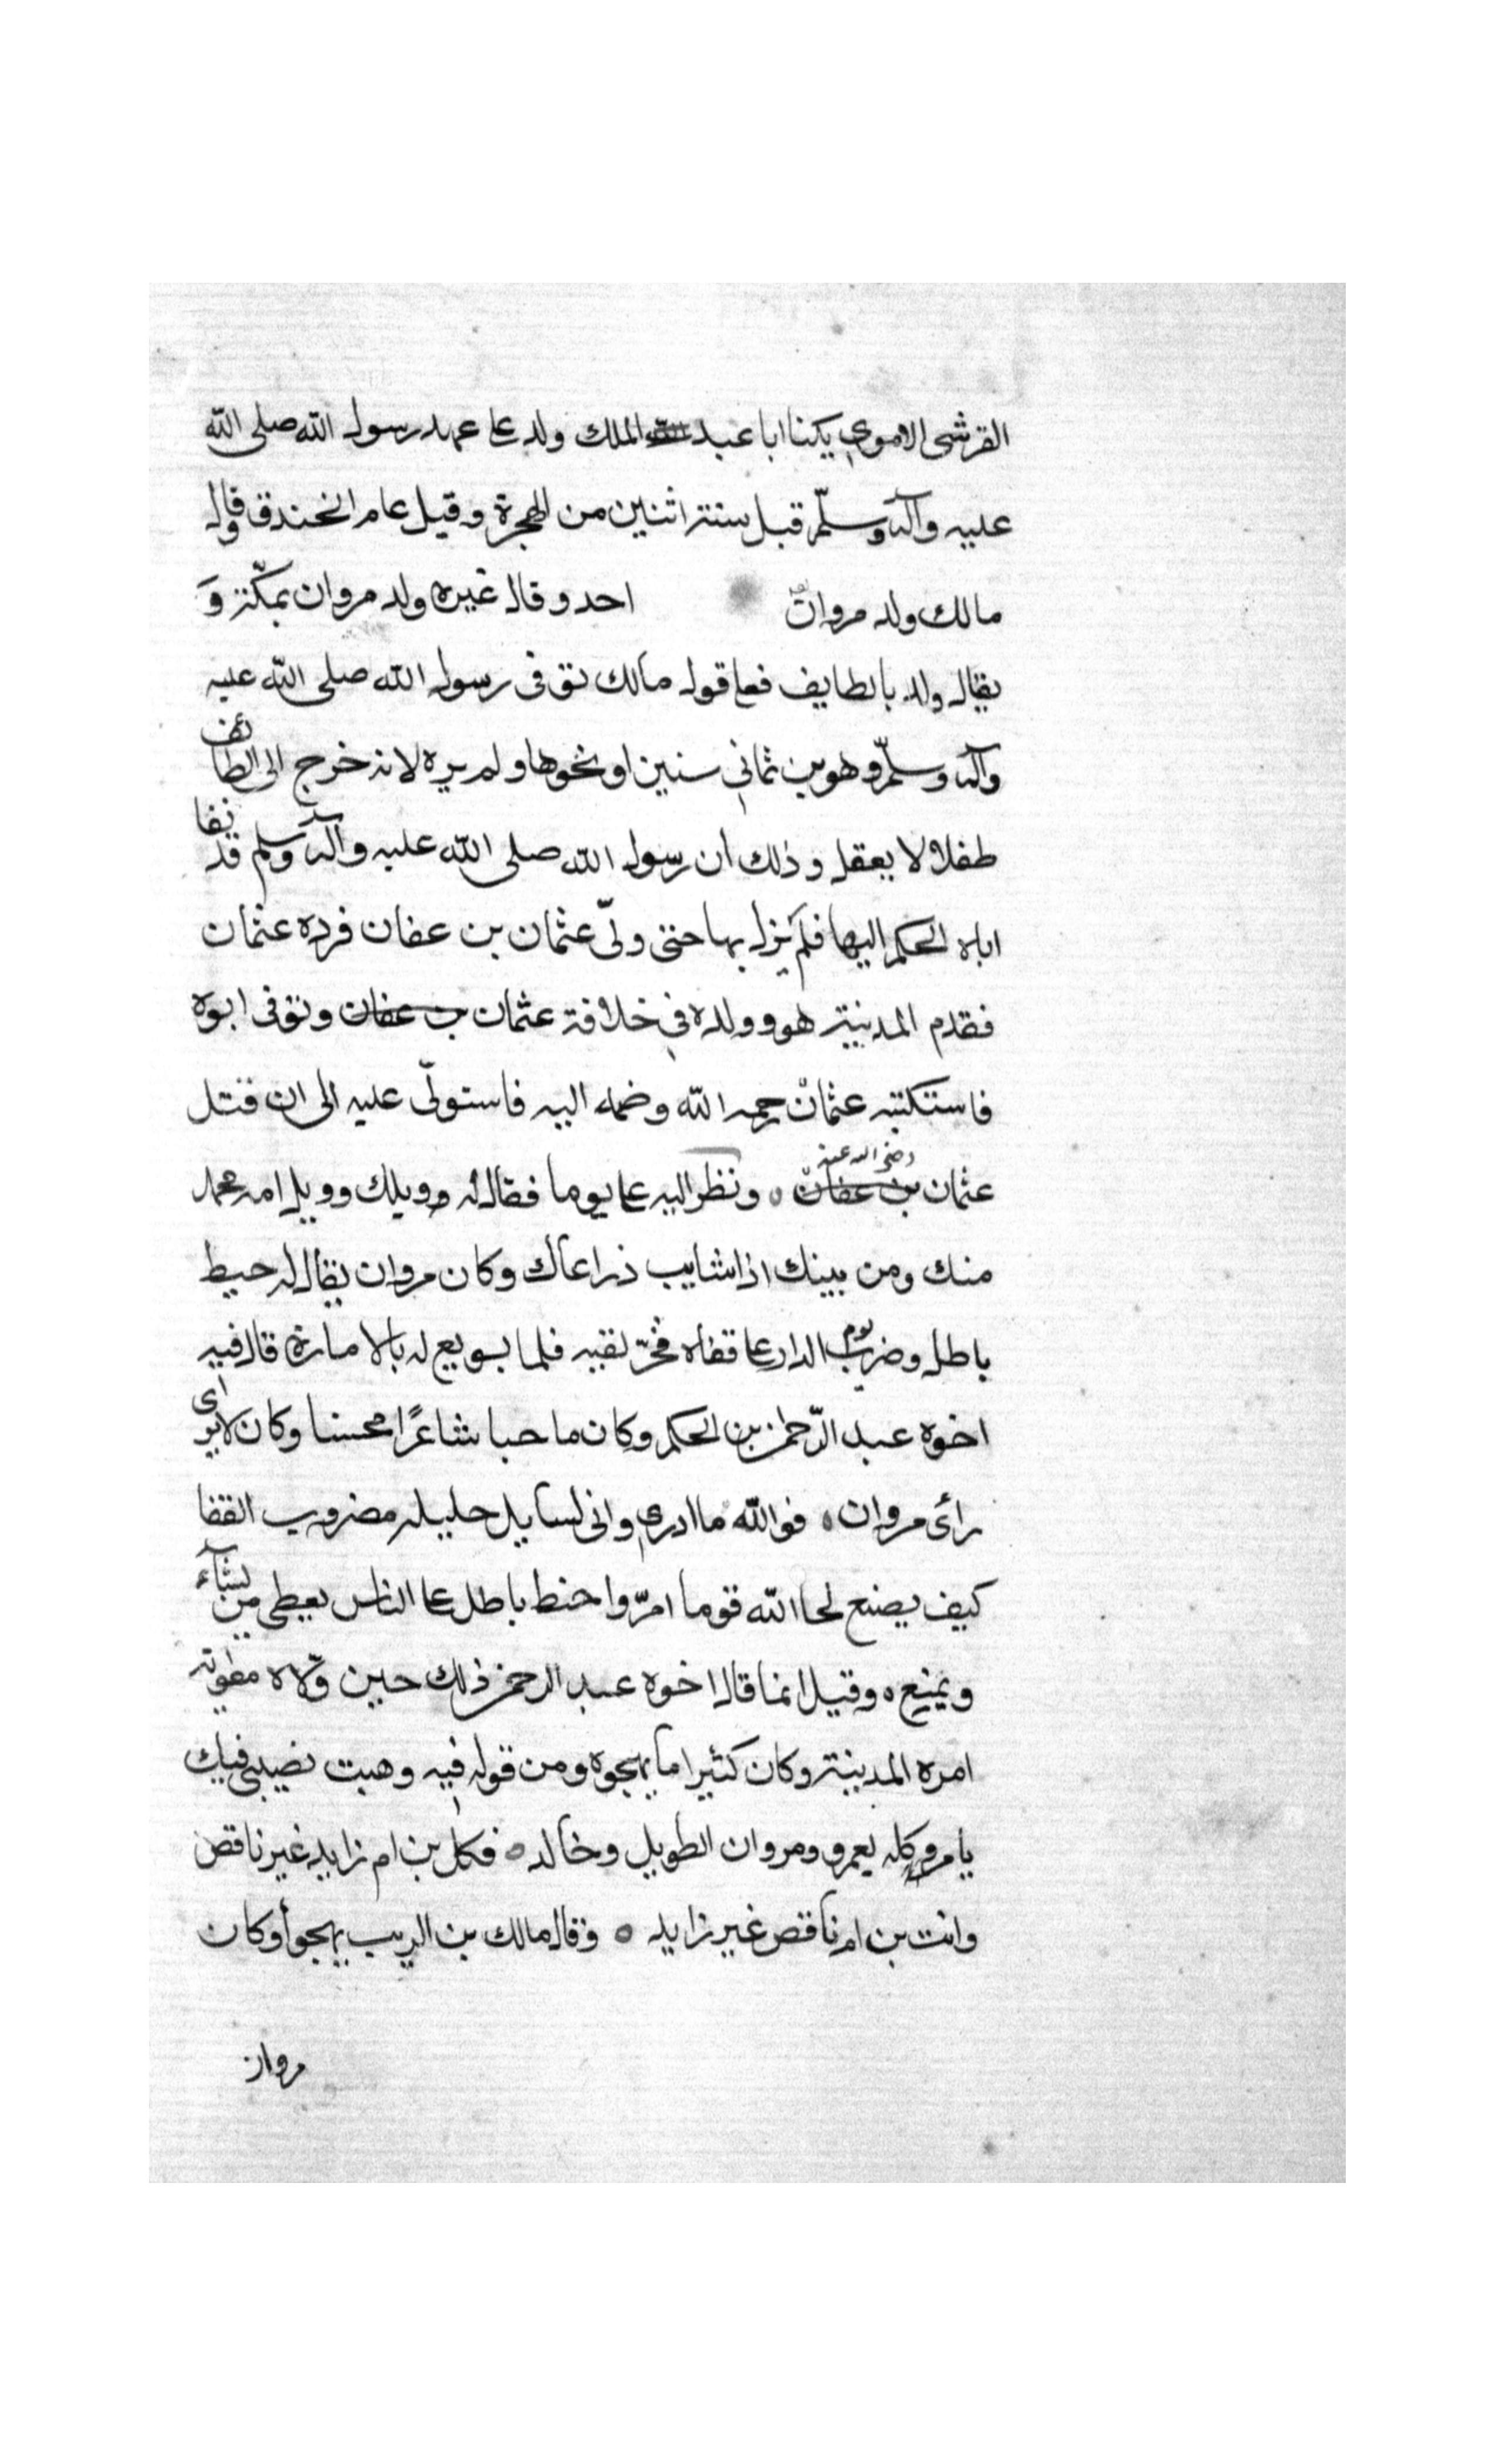 القرشى الاموي يكنا ابا عبد الملك ولد على عهد رسول الله صلى الله
عليه وآله وسلّم قبل سنة اثنين من الهجرة وقيل عام الخندق وقال
مالك ولد مروان احد وقال غيره ولد مروان بمكّة وَ
يقال ولد بالطايف فعلى قول مالك توفى رسول الله صلى الله عليه
وآله وسلّم وهو بن ثماني سنين او نحوها ولم يره لانه خرج الى الطائف
طفلا لا يعقل وذلك ان رسول الله صلى الله عليه وآله وسلم قد نفا
اباه الحكم اليها فلم يزل بها حتى ولّى عثمان بن عفان فرده عثمان
فقدم المدينة هو وولده في خلافة عثمان بن عفان وتوفى ابوه
فاستكتبه عثمان رحمه الله وضمه اليه فاستولّى عليه الى ان قتل
عثمان بن عفان رضى الله عنه ونظر اليه على يوما فقال له ويلك وويل امه محمد
منك ومن بينك اذا شايب ذراعاك وكان مروان يقال له خيط
باطل وضرب يوم الدار على قفاه فخرّ لقبه فلما بويع له بالامارة قال فيه
اخوه عبد الرّحمن بن الحكم وكان ماحبا شاعرًا محسنا وكان لا يرى اى
رأى مروان فوالله ما ادري وانى لسايل حليله مضروب القفا
كيف يصنع لحا الله قوما امرّوا خيط باطل على الناس يعطى من يشآء
ويمنع وقيل انما قال اخوه عبد الرحمن ذلك حين ولّاه معوية
امره المدينة وكان كثيرا ما يهجوه ومن قوله فيه وهبت نصيبى فيك
يا مرو كله لعمرو ومروان الطويل وخالد فكل بن ام زايد غير ناقص
وانت بن ام ناقص غير زايد وقال مالك بن الريب يهجو أوكان
مروان